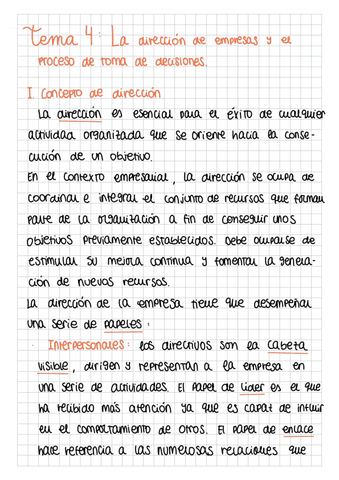 Tema 4: La dirección de empresas y el
proceso de toma de decisiones.
I. Concepto de dirección
La dirección es esencial para el éxito de cualquier
actividad organizada que se oriente hacia la conse-
cución de un objetivo.
En el contexto empresarial, la dirección se ocupa de
coordinar e integrar el conjunto de recursos que forman
parte de la organización a fin de conseguir unos
objetivos previamente establecidos. Debe ocuparse de
estimular su mejora continua y fomentar la genera-
ción de nuevos recursos.
La dirección de la empresa tiene que desempeñar
una serie de papeles:
· Interpersonales: los directivos son la cabeza
visible, dirigen y representan a la empresa en
una serie de actividades. El papel de líder es el que
ha recibido más atención ya que es capaz de influir
en el comportamiento de otros. El papel de enlace
hace referencia a las numerosas relaciones que